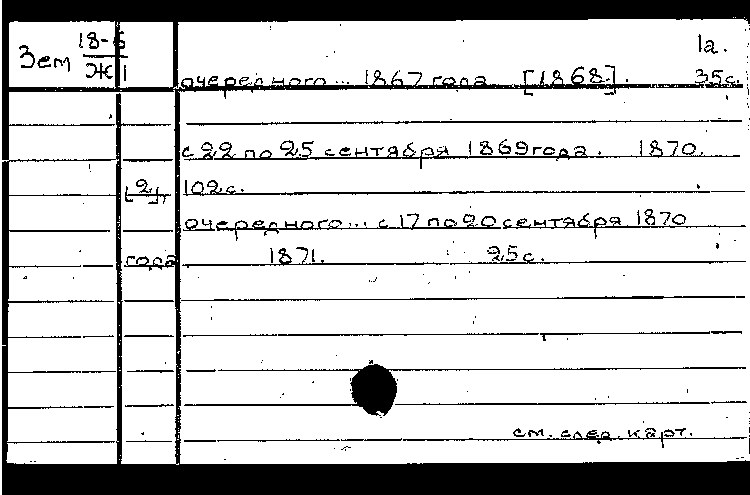 Зем 18-6 1а.
Ж 1 очередного... 1867 года [1868]. 35с.
с 22 по 25 сентября 1869 года. 1870.
[2], 102 с.
очередного... с 17 по 20 сентября 1870
года 1871. 25с.
см. след. карт.